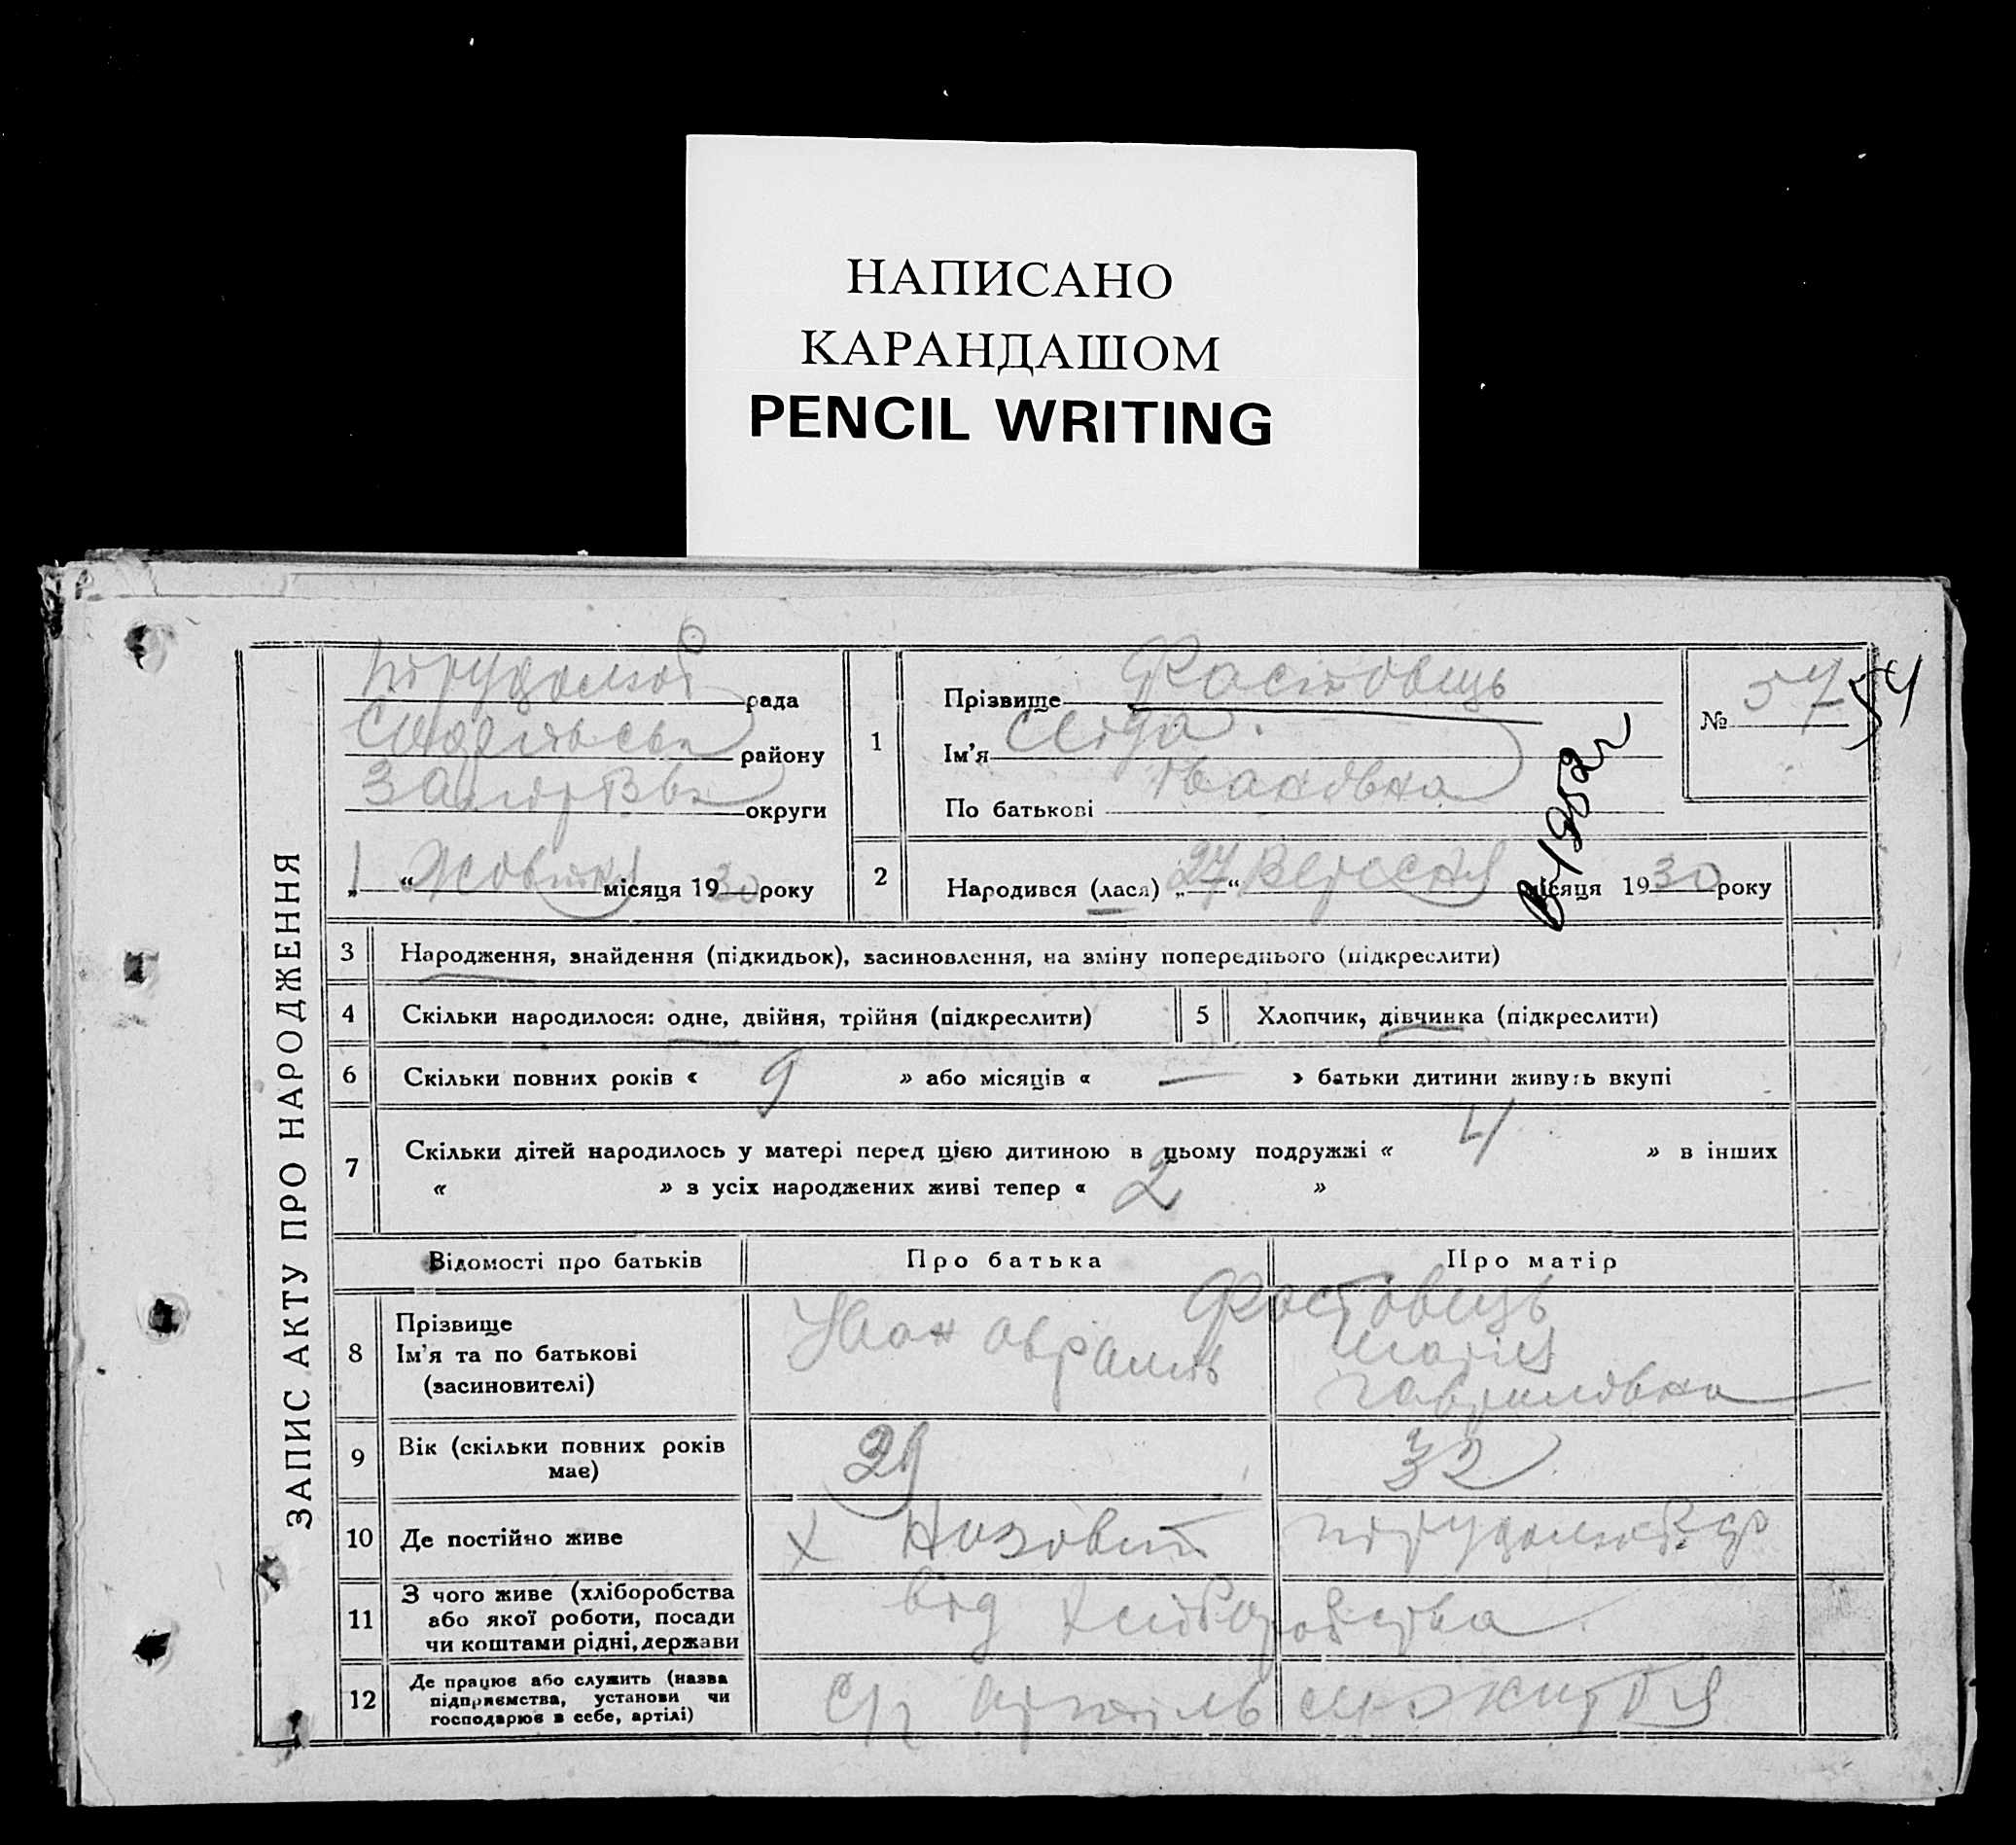 НАПИСАНО
КАРАНДАШОМ
PENCIL WRITING
ЗАПИС АКТУ ПРО НАРОДЖЕННЯ
рада
району
округи
„1“ Жовтня місяця 1930 року
1
Прізвище Фастовець
Ім'я Ліда
По батькові Івановна
№ 57
54
В-1952г
2 Народився (лася) „27“ Вересня місяця 1930 року
3 Народження, знайдення (підкидьок), засиновлення, на зміну попереднього (підкреслити)
4 Скільки народилося: одне, двійня, трійня (підкреслити) 5 Хлопчик, дівчинка (підкреслити)
6 Скільки повних років « 9 » або місяців « — » батьки дитини живуть вкупі
7 Скільки дітей народилось у матері перед цією дитиною в цьому подружжі « 4 » в інших
« » з усіх народжених живі тепер « 2 »
Відомості про батьків Про батька Про матір
8 Прізвище Фастовець
Ім'я та по батькові Іван Аврамів Марія
(засиновителі) Гавриловна
9 Вік (скільки повних років має) 29 32
10 Де постійно живе х
11 З чого живе (хліборобства
або якої роботи, посади
чи коштами рідні, держави від хліборобства
12 Де працює або служить (назва
підприємства, установи чи
господарює в себе, артілі) артіль